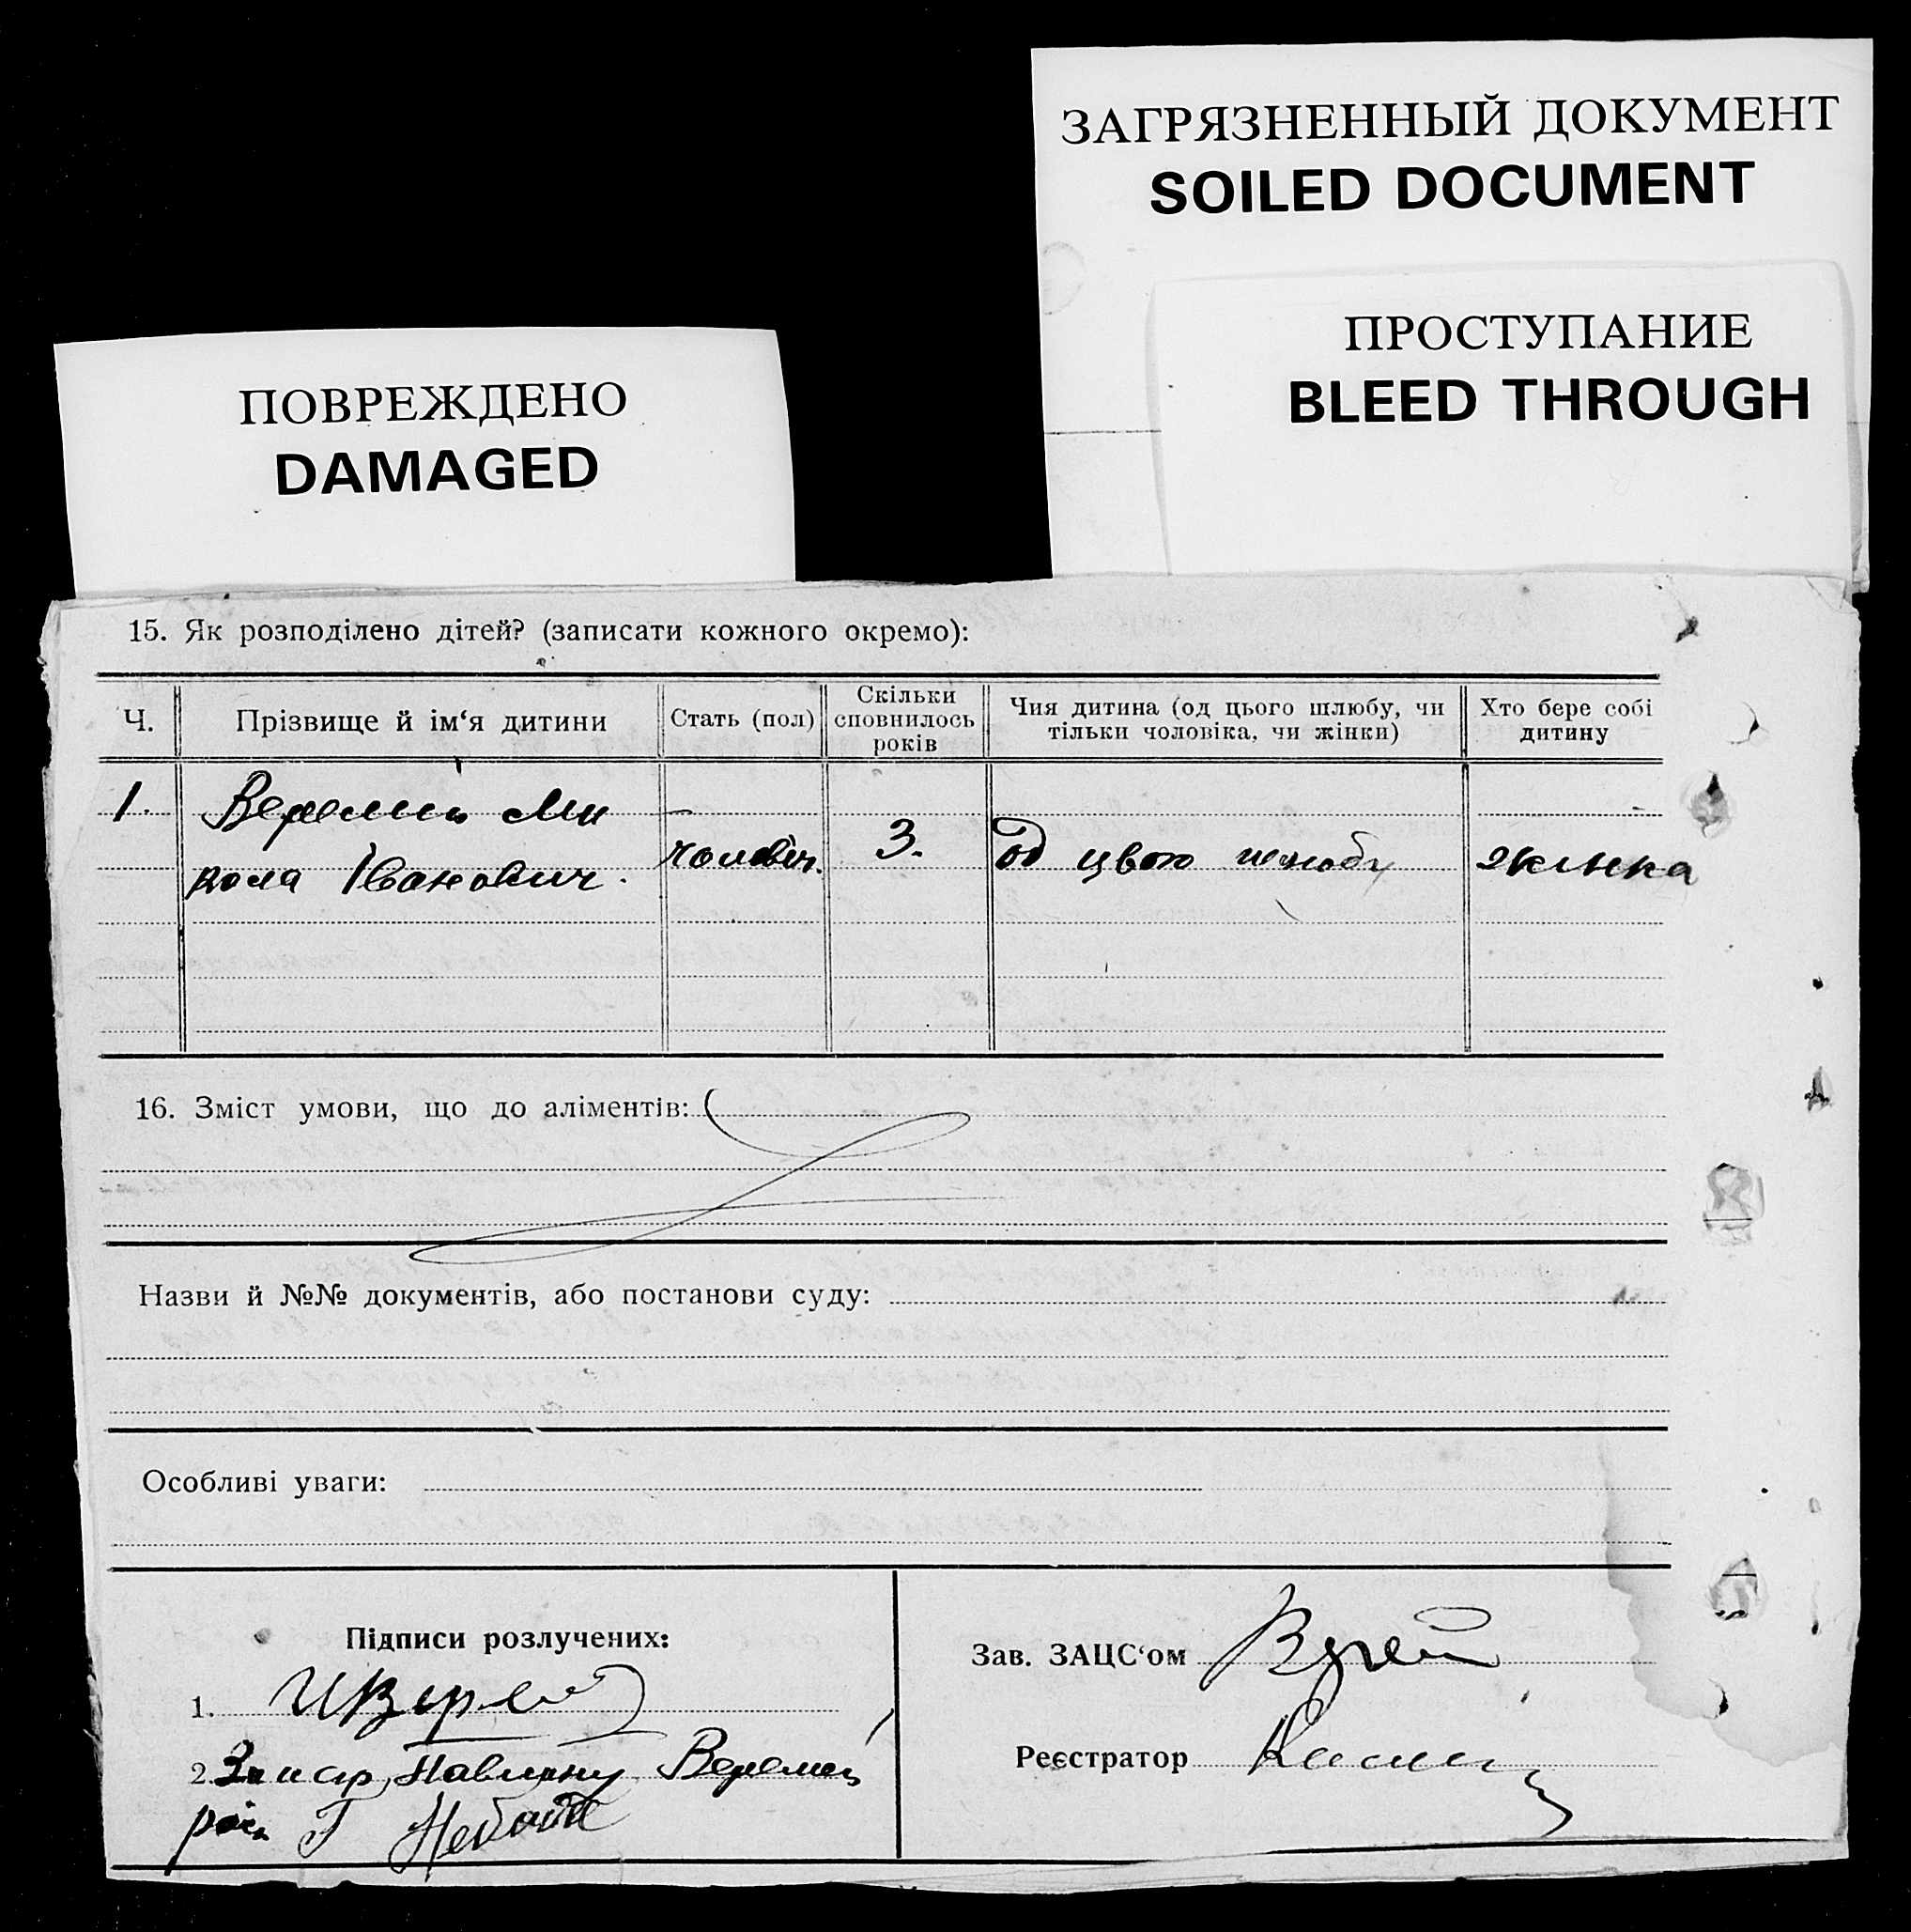 ЗАГРЯЗНЕННЫЙ ДОКУМЕНТ
SOILED DOCUMENT
ПРОСТУПАНИЕ
BLEED THROUGH
ПОВРЕЖДЕНО
DAMAGED
15. Як розподілено дітей? (записати кожного окремо):
Ч.
Прізвище й ім‘я дитини
Стать (пол)
Скільки
сповнилось
років
Чия дитина (од цього шлюбу, чи
тільки чоловіка, чи жінки)
Хто бере собі
дитину
1.
Веремій Ми
кола Іванович.
чоловіч.
3.
од цього шлюбу
жінка
16. Зміст умови, що до аліментів:
Назви й №№ документів, або постанови суду:
Особливі уваги:
Підписи розлучених:
1.
2. За Павлину Веремій
Зав. ЗАЦС‘ом
Реєстратор